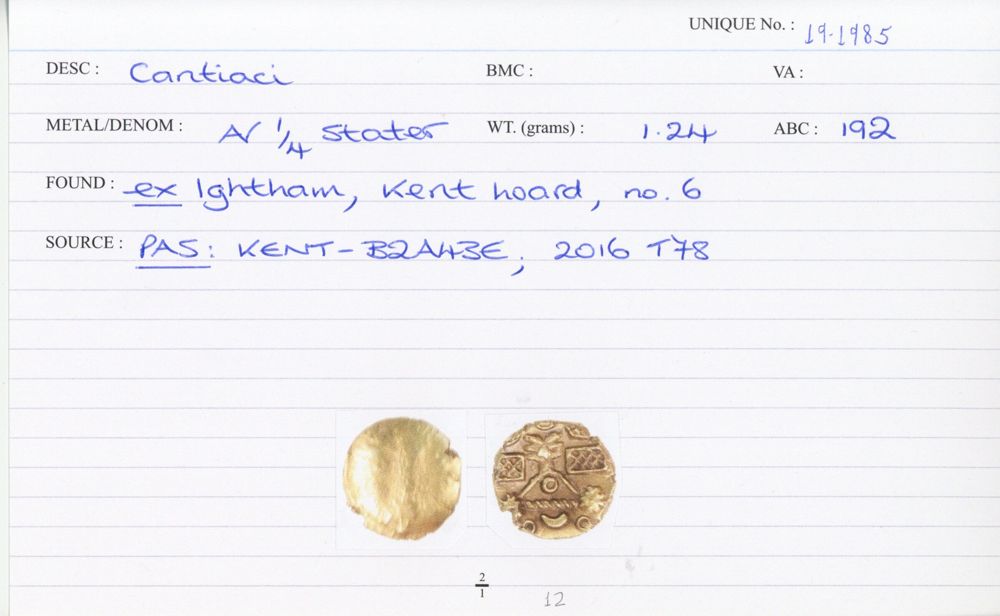 UNIQUE No. : 19-1985
DESC : Cantiaci BMC : VA :
METAL/DENOM : AV 1/4 stater WT. (grams) : 1.24 ABC : 192
FOUND : ex Ightham, Kent hoard, no. 6
SOURCE : PAS: KENT-B2A43E, 2016 T78
2/1
12